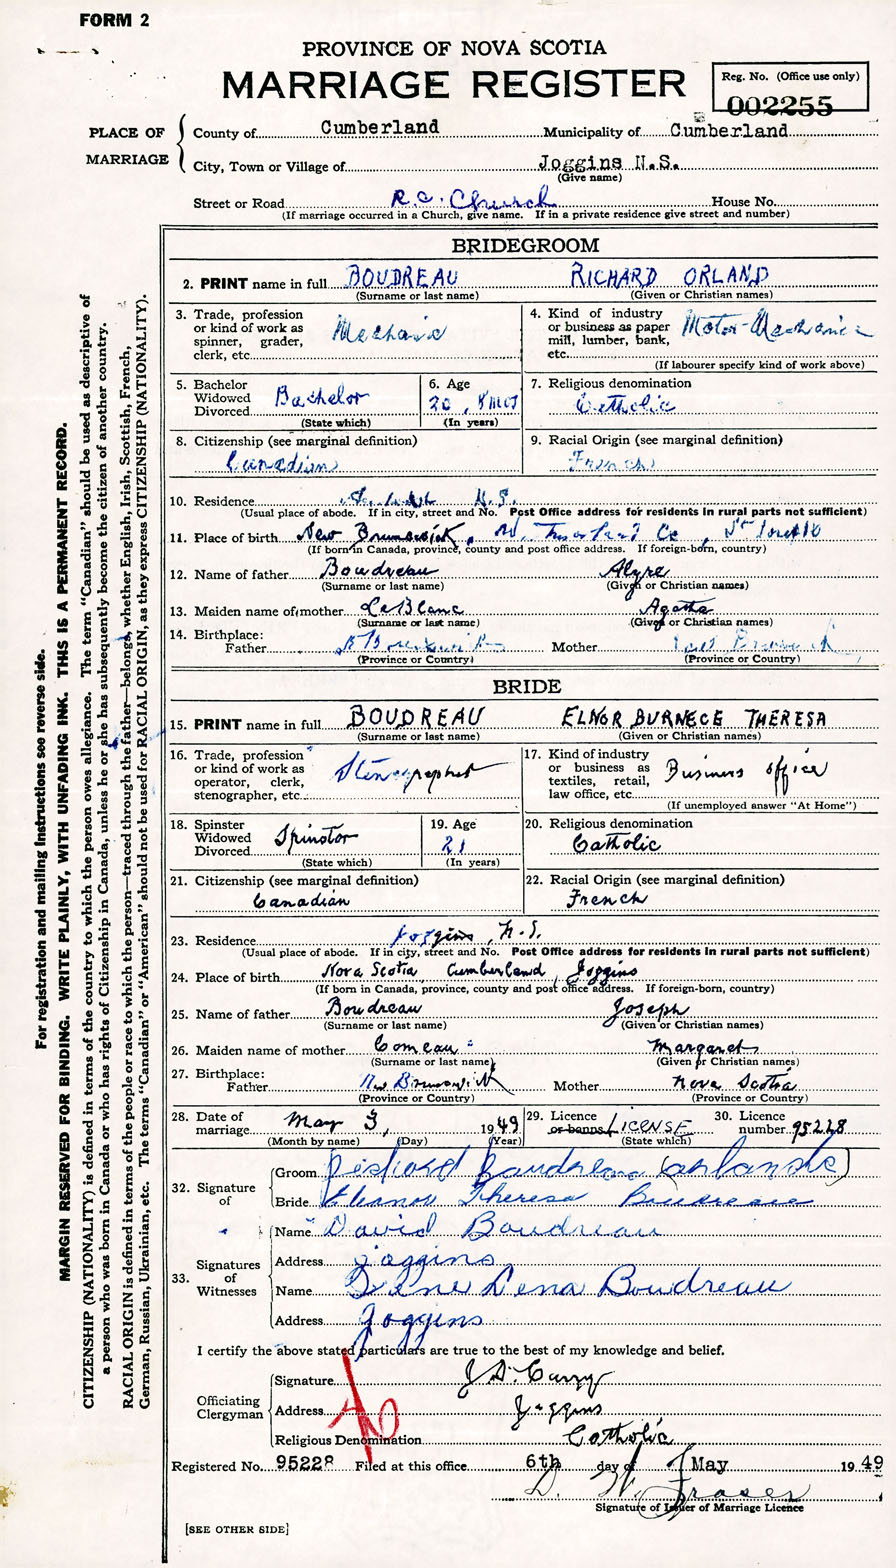 FORM 2
PROVINCE OF NOVA SCOTIA
MARRIAGE REGISTER
Reg. No. (Office use only)
002255
PLACE OF MARRIAGE
County of Cumberland Municipality of Cumberland
City, Town or Village of Joggins N.S.
(Give name)
Street or Road R.C. Church House No.
(If marriage occurred in a Church, give name. If in a private residence give street and number)
BRIDEGROOM
2. PRINT name in full BOUDREAU RICHARD ORLAND
(Surname or last name) (Given or Christian names)
3. Trade, profession or kind of work as spinner, grader, clerk, etc. Mechanic
4. Kind of industry or business as paper mill, lumber, bank, etc. Motor-Mechanic
(If labourer specify kind of work above)
5. Bachelor Widowed Divorced Bachelor
(State which)
6. Age 20, 8 mos
(In years)
7. Religious denomination
Catholic
8. Citizenship (see marginal definition)
Canadian
9. Racial Origin (see marginal definition)
French
10. Residence N.S.
(Usual place of abode. If in city, street and No. Post Office address for residents in rural parts not sufficient)
11. Place of birth New Brunswick, Co,
(If born in Canada, province, county and post office address. If foreign-born, country)
12. Name of father Boudreau Alyre
(Surname or last name) (Given or Christian names)
13. Maiden name of mother LeBlanc Agatha
(Surname or last name) (Given or Christian names)
14. Birthplace:
Father Mother
(Province or Country) (Province or Country)
BRIDE
15. PRINT name in full BOUDREAU ELNOR BURNECE THERESA
(Surname or last name) (Given or Christian names)
16. Trade, profession or kind of work as operator, clerk, stenographer, etc. Stenographer
17. Kind of industry or business as textiles, retail, law office, etc. Business office
(If unemployed answer "At Home")
18. Spinster Widowed Divorced Spinstor
(State which)
19. Age 21
(In years)
20. Religious denomination
Catholic
21. Citizenship (see marginal definition)
Canadian
22. Racial Origin (see marginal definition)
French
23. Residence Joggins, N.S.
(Usual place of abode. If in city, street and No. Post Office address for residents in rural parts not sufficient)
24. Place of birth Nova Scotia, Cumberland, Joggins
(If born in Canada, province, county and post office address. If foreign-born, country)
25. Name of father Boudreau Joseph
(Surname or last name) (Given or Christian names)
26. Maiden name of mother Comeau Margaret
(Surname or last name) (Given or Christian names)
27. Birthplace:
Father New Brunswick Mother Nova Scotia
(Province or Country) (Province or Country)
28. Date of marriage May 3, 1949
(Month by name) (Day) (Year)
29. Licence or banns LICENSE
(State which)
30. Licence number 95228
32. Signature of
Groom Richard Boudreau
Bride Eleanor Theresa Boudreau
33. Signatures of Witnesses
Name David Boudreau
Address Joggins
Name Irene Lena Boudreau
Address Joggins
I certify the above stated particulars are true to the best of my knowledge and belief.
Officiating Clergyman
Signature J. D. Curry
Address Joggins
Religious Denomination Catholic
Registered No. 95228 Filed at this office 6th day of May 1949
D. W. Fraser
Signature of Issuer of Marriage Licence
[SEE OTHER SIDE]
For registration and mailing instructions see reverse side.
MARGIN RESERVED FOR BINDING. WRITE PLAINLY, WITH UNFADING INK. THIS IS A PERMANENT RECORD.
CITIZENSHIP (NATIONALITY) is defined in terms of the country to which the person owes allegiance. The term "Canadian" should be used as descriptive of
a person who was born in Canada or who has rights of Citizenship in Canada, unless he or she has subsequently become the citizen of another country.
RACIAL ORIGIN is defined in terms of the people or race to which the person—traced through the father—belongs, whether English, Irish, Scottish, French,
German, Russian, Ukrainian, etc. The terms "Canadian" or "American" should not be used for RACIAL ORIGIN, as they express CITIZENSHIP (NATIONALITY).